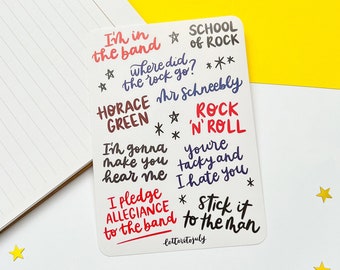 I'm in
the band
SCHOOL
OF ROCK
where did
the rock go?
Mr Schneebly
HORACE
GREEN
ROCK
'N' ROLL
I'm gonna
make you
hear me
you're
tacky and
I hate you
I pledge
ALLEGIANCE
to the band
Stick it
to the man
letteritojuly